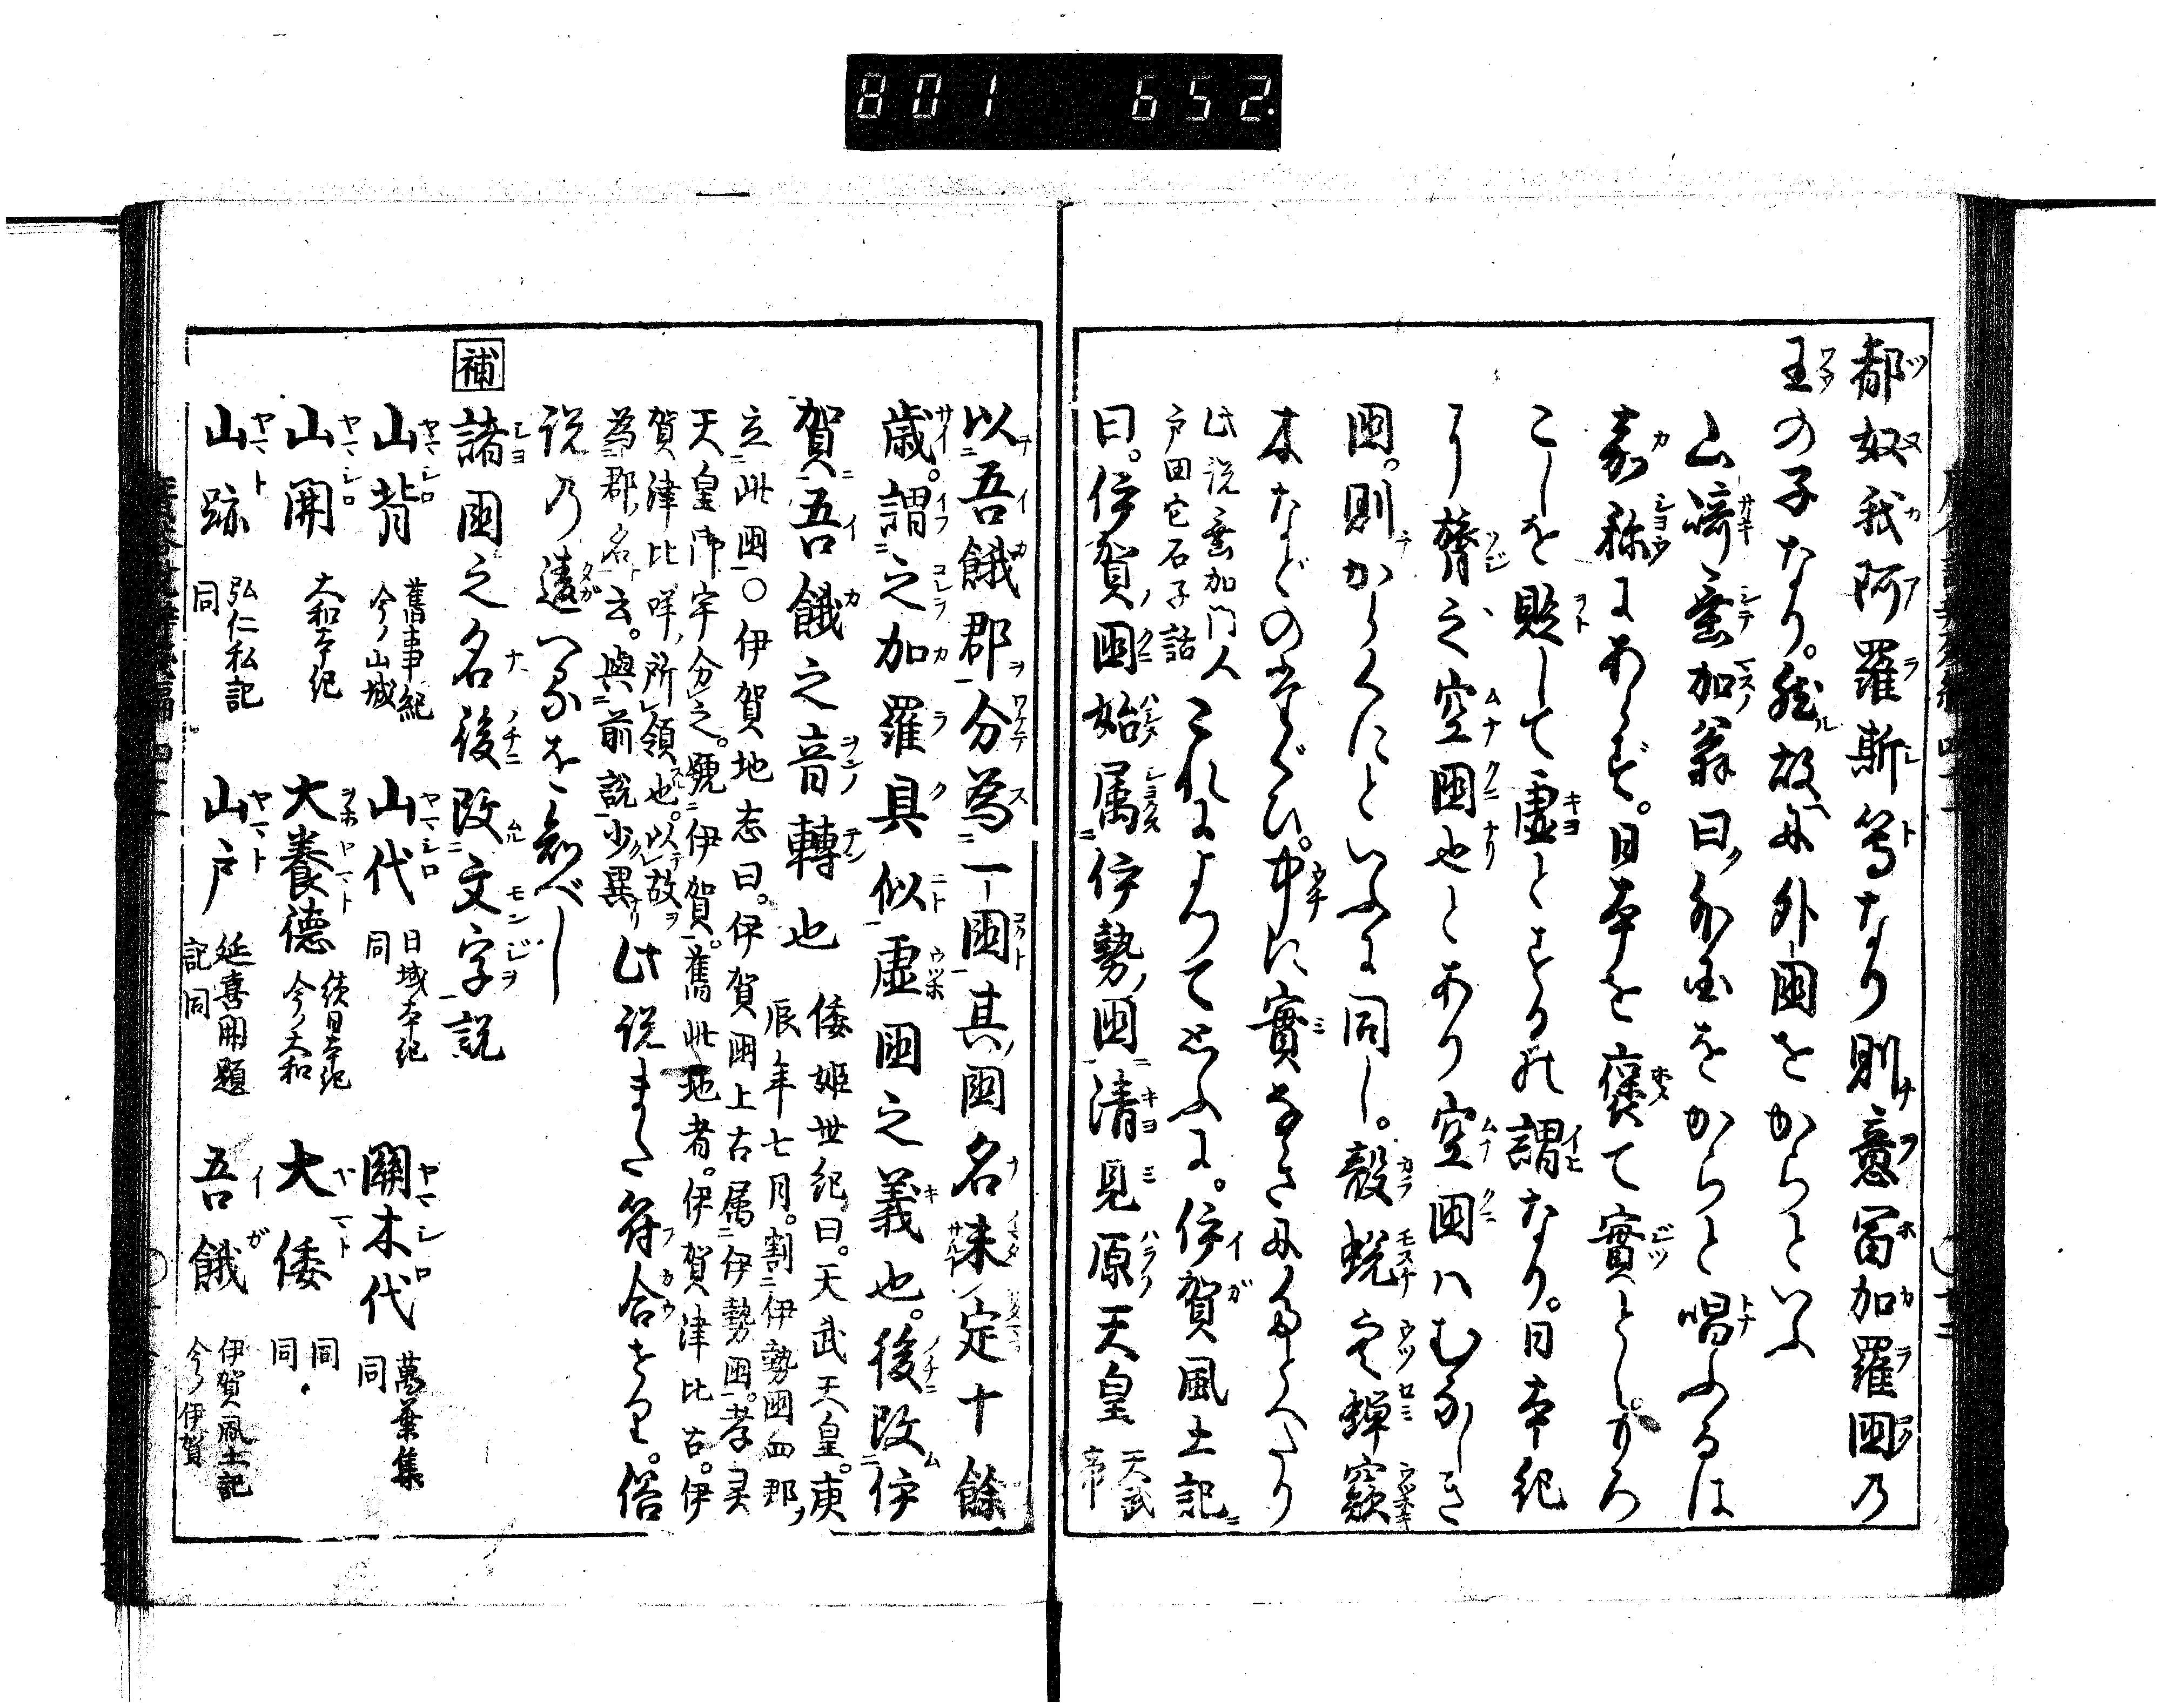 801 652
都奴我阿羅斯等なり則意冨加羅國乃
王の子なり。然故に外國をからといふ
山﨑垂加翁曰外国をからと唱ふるは
嘉称にあらず。日本を褒て實とし。から
こしを貶して虚とするの謂なり。日本紀
に膂之空國也とあり空國ハむなしき
國。則からくにといふに同し。殻蛻空蟬窾
木などのたぐひ。中に實なきにたとへたり
此説垂加門人
戸田定石子話
これによつて思ふに。伊賀風土記
曰。伊賀國始属伊勢國清見原天皇
天武
帝
以吾餓郡分為一國其國名未定十餘
歳。謂之加羅具似虚國之義也。後改伊
賀吾餓之音轉也
倭姫世紀曰。天武天皇。庚
辰年七月。割伊勢國四郡
立此國〇伊賀地志曰。伊賀國上古属伊勢國。孝灵
天皇御宇分之。號伊賀。舊此地者。伊賀津比古。伊
賀津比咩所領也。以故
為郡名云。與前説少異
此説また符合せり。俗
説乃違へるを知べし
補
諸國之名後改文字説
山背 舊事紀 今ノ山城 山代 日域本紀 同 開木代 萬葉集 同
山開 大和本紀 大養德 續日本紀 今ノ大和 大倭 同 同
山跡 弘仁私記 同 山戸 延喜開題記 同 吾餓 伊賀風土記 今ノ伊賀